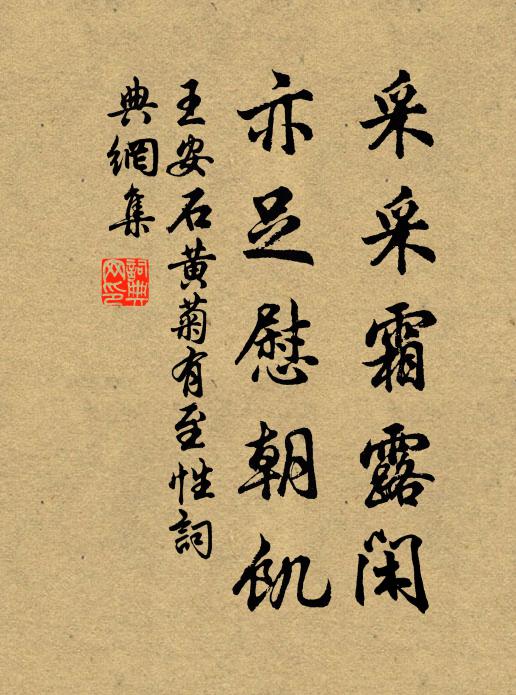 采采霜露閑
亦足慰朝飢
王安石黄菊有至性詞
典網集
詞典
网印